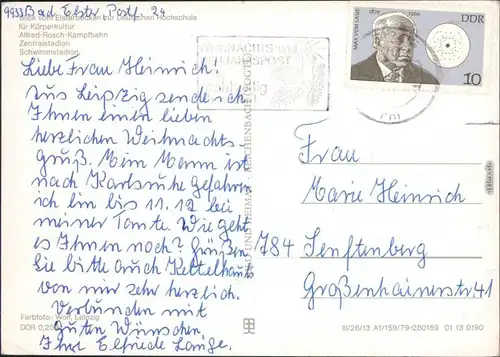 9933 Bad Elster Postl. 24
Blick vom Elsterbecken zur Deutschen Hochschule
für Körperkultur
Alfred-Rosch-Kampfbahn
Zentralstadion
Schwimmstadion
Liebe Frau Heinrich.
Aus Leipzig sende ich
Ihnen einen lieben
herzlichen Weihnachts-
gruß. Mein Mann ist
nach Karlsruhe gefahren
ich bin bis 11.12 bei
meiner Tante. Wie geht
es Ihnen noch? Grüßen
Sie bitte auch Kettelhauts
von mir sehr herzlich.
Verbunden mit
guten Wünschen
Ihre Elfriede Lange.
Farbfoto: Woll, Leipzig
DDR 0,20
WEIHNACHTS und
NEUJAHRSPOST
MAX VON LAUE
1879 1960
DDR
10
Frau
Marie Heinrich
784 Senftenberg
Großenhainerstr. 41
III/26/13 A1/159/79-280159 01 13 0190